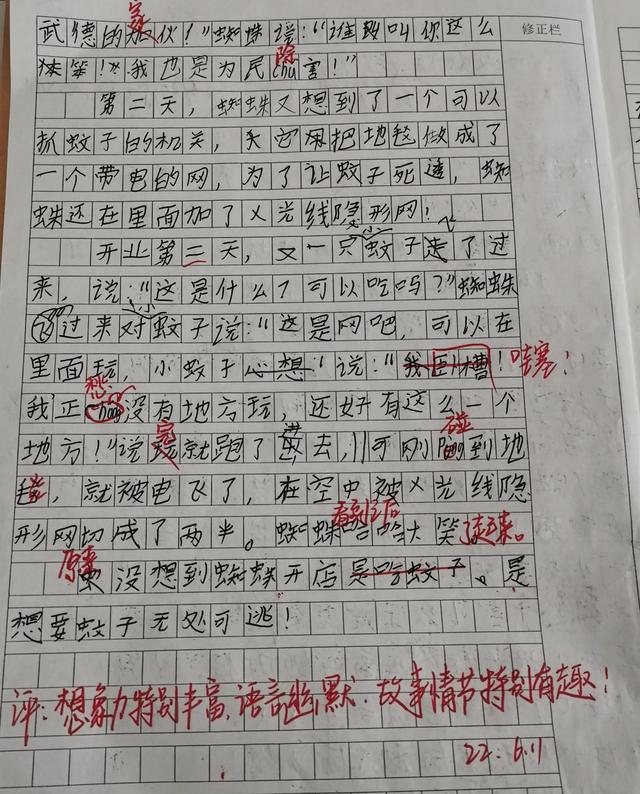 修正栏
家
武德的伙!"蜘蛛说:"谁叫你这么
除
体笨!"我也是为民chu害!"
第二天,蜘蛛又想到了一个可以
抓蚊子的机关,它用把地毯做成了
一个带电的网,为了让蚊子死速,蜘
蛛还在里面加了X光线隐形网!
飞
开业第二天,又一只蚊子走了过
来,说:"这是什么了可以吃吗?"蜘蛛
小
飞过来对蚊子说:"这是网吧,可以在
里面玩,小蚊子心想"说:"我槽!哇塞!
愁
我正chong没有地方玩,还好有这么一个
完 进 碰
地方!"说就跑了去,可刚peng到地
毯,就被电飞了,在空中被X光线隐
看到后
形网切成了两半。蜘蛛哈哈大笑了起来。
原来
没想到蜘蛛开店是吃蚊子。是
想要蚊子无处可逃!
评:想象力特别丰富,语言幽默.故事情节特别有趣!
22.6.11